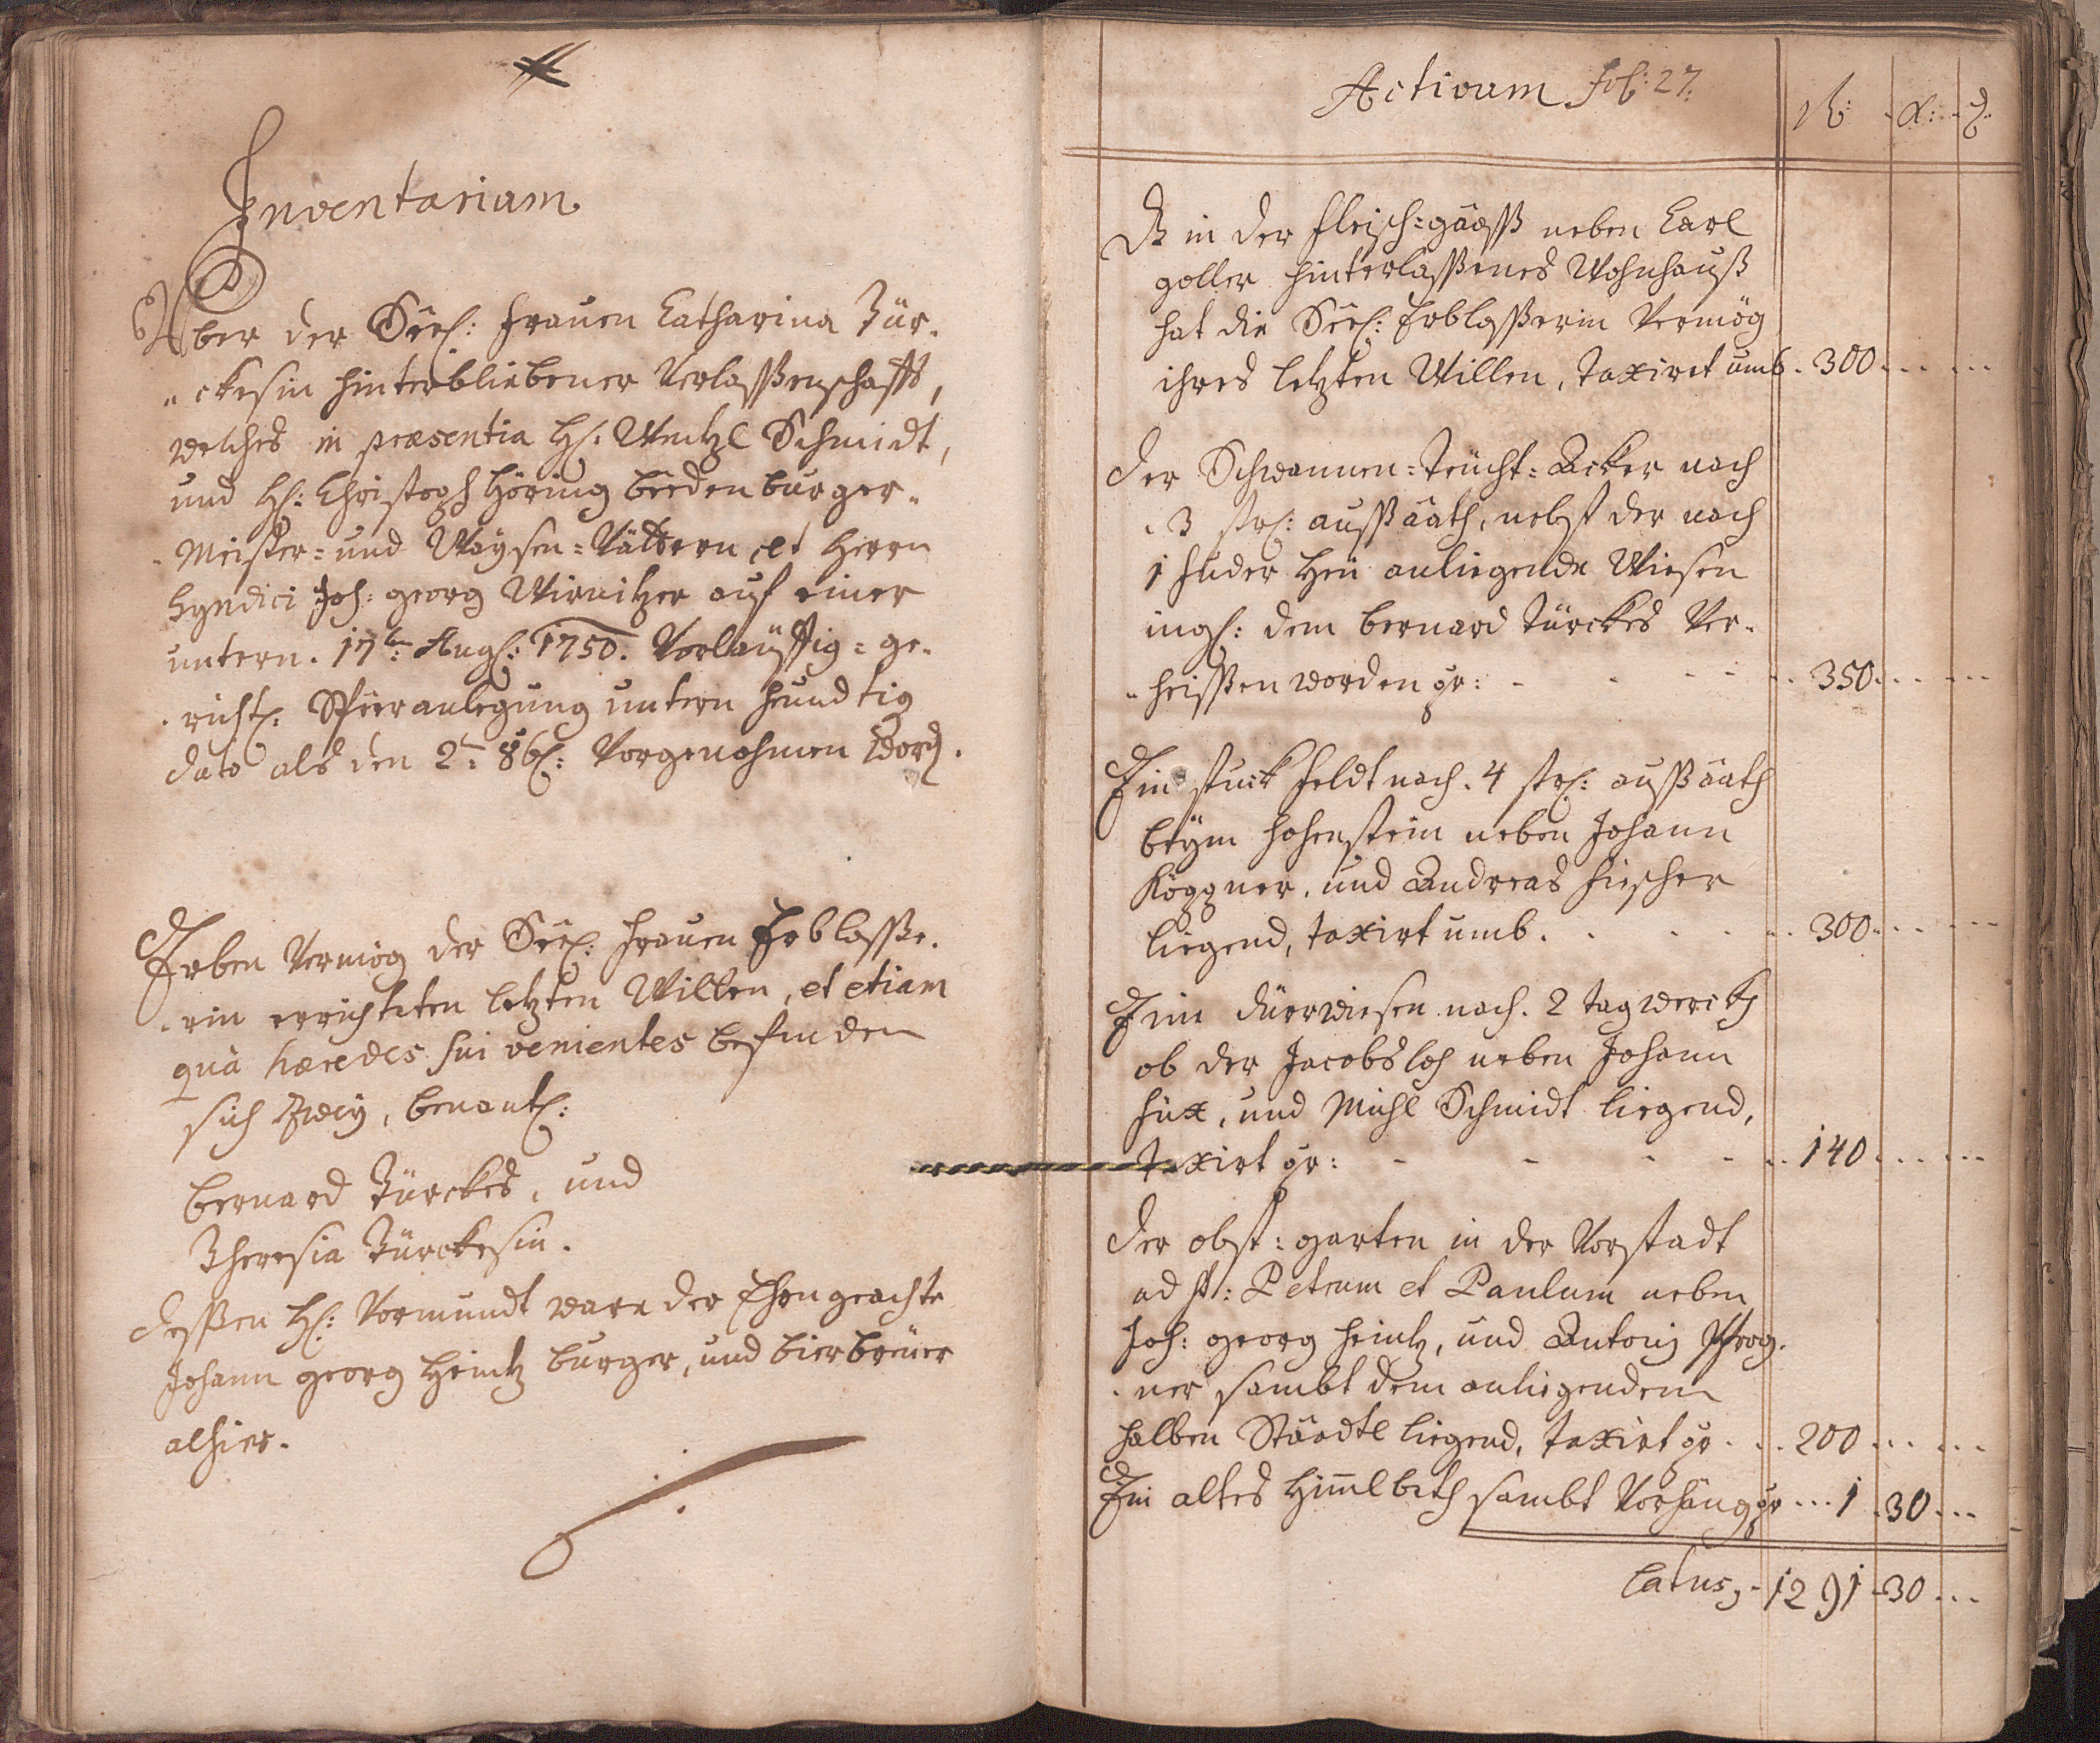 Inventarium
Über der Seel: Frauen Catharina Tür-
„ckesin hinterbliebener Verlassenschafft,
welches in præsentia H: Wentzl Schmidt,
und H: Christoph Höring beeden burger„
„Meister= und Waysen=Vättern, et Herrn
Syndici Joh: georg Wirnitzer auf einer
untern 17ten Aug: 1750. Vorlauffig=ge-
„richtl: anlegung untern heundtig
dato als den 2ten 8bl: Vorgenohmen word.
Erben Vermög der Seel: Frauen Erblasse-
„rin errichteten letzten Willen, et etiam
quà hæredes sui venientes befinden
sich Zwey, benantl:
bernard Türckes, und
Theresia Türckesin.
dessen H: Vormundt ware der Ehrngeachte
Johann georg Heintz burger, und bierbreüer
alhier.
Activum fol: 27.
f: x: d
Dß in der fleisch=gäass neben Carl
goller hinterlassenes Wohnhauß
hat die Seel: Erblasserin Vermög
ihres letzten Willen, taxiret umb. 300
der Schwannen=teücht=Acker nach
3 str: aussäath, nebst der nach
1 fuder Heü anliegende Wiesen
ingl: dem bernard Türckes Ver-
„heissen worden pr: 350
Ein stuck feldt nach 4 str: aussäath
beÿm hohenstein neben Johann
Köppner, und Andreas fischer
liegend, taxirt umb. 300
Eine dürrwiesen nach 2 tagwerckh
ob der Jacobsloh neben Johann
füx, und Michl Schmidt liegend,
taxirt pr: 140
der obst=garten in der Vorstadt
ad st: Petrum et Paulum neben
Joh: georg heintz, und Antoni Pfrog-
„ner sambt dem anliegenden
halben Städtl liegend, taxirt pr 200
Ein altes Himlbeth sambt Vorhäng pr 1 30
Latus, 1291 30